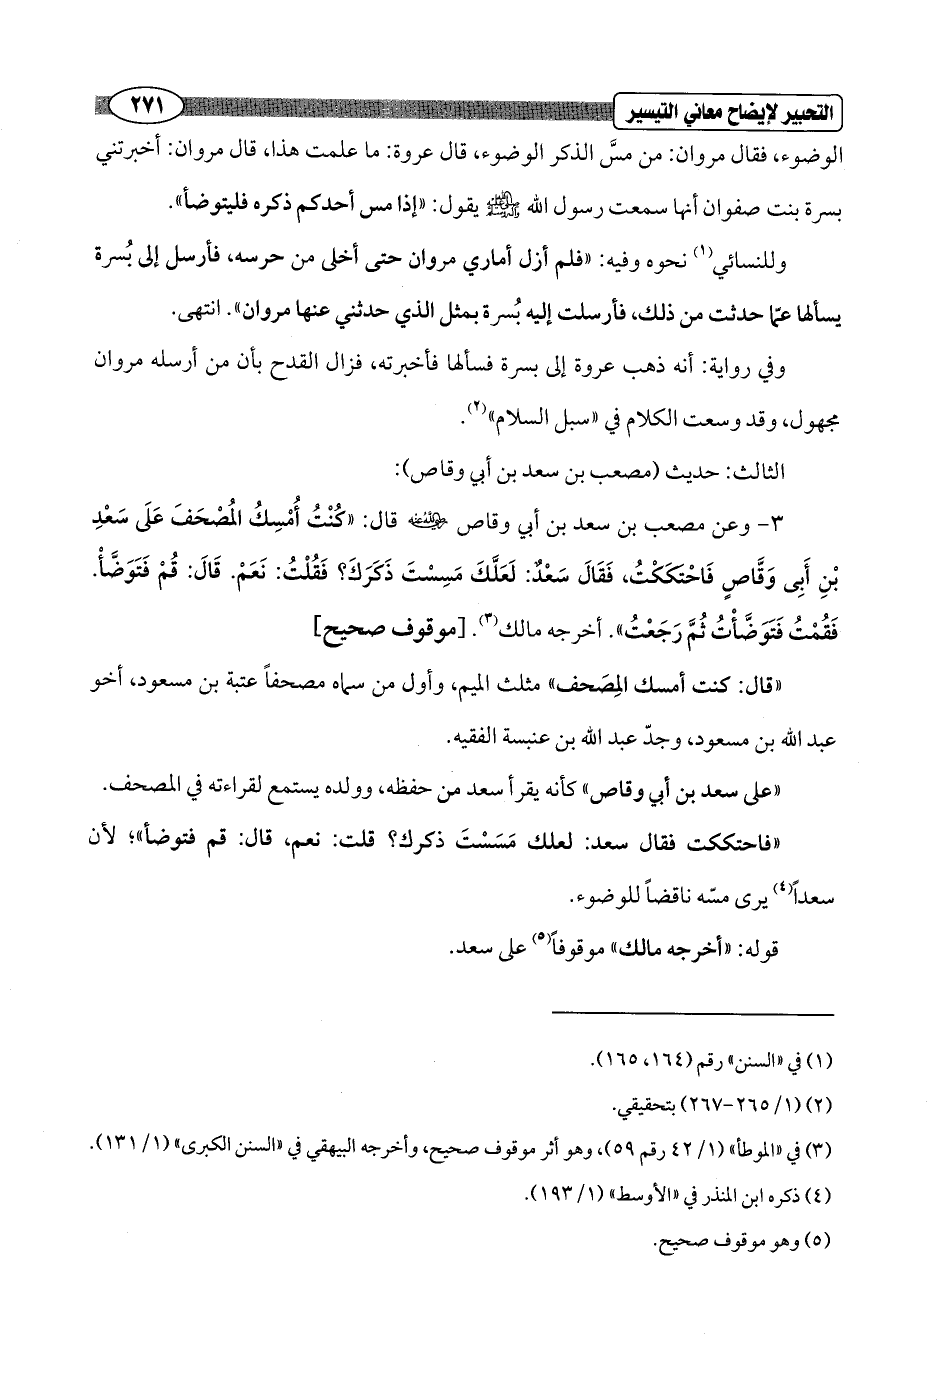 التحبير لإيضاح معاني التيسير
٢٧١
الوضوء، فقال مروان: من مسَّ الذكر الوضوء، قال عروة: ما علمت هذا، قال مروان: أخبرتني
بسرة بنت صفوان أنها سمعت رسول الله ﷺ يقول: «إذا مس أحدكم ذكره فليتوضأ».
وللنسائي(١) نحوه وفيه: «فلم أزل أماري مروان حتى أخلى من حرسه، فأرسل إلى بُسرة
يسألها عمّا حدثت من ذلك، فأرسلت إليه بُسرة بمثل الذي حدثني عنها مروان». انتهى.
وفي رواية: أنه ذهب عروة إلى بسرة فسألها فأخبرته، فزال القدح بأن من أرسله مروان
مجهول، وقد وسعت الكلام في «سبل السلام»(٢).
الثالث: حديث (مصعب بن سعد بن أبي وقاص):
٣- وعن مصعب بن سعد بن أبي وقاص رضي الله عنه قال: «كُنْتُ أُمْسِكُ المُصْحَفَ عَلَى سَعْدِ
بْنِ أَبِى وَقَّاصٍ فَاحْتَكَكْتُ، فَقَالَ سَعْدٌ: لَعَلَّكَ مَسِسْتَ ذَكَرَكَ؟ فَقُلْتُ: نَعَمْ. قَالَ: قُمْ فَتَوَضَّأْ.
فَقُمْتُ فَتَوَضَّأْتُ ثُمَّ رَجَعْتُ». أخرجه مالك(٣). [موقوف صحيح]
«قال: كنت أمسك المِصَحف» مثلث الميم، وأول من سماه مصحفاً عتبة بن مسعود، أخو
عبد الله بن مسعود، وجدّ عبد الله بن عنبسة الفقيه.
«على سعد بن أبي وقاص» كأنه يقرأ سعد من حفظه، وولده يستمع لقراءته في المصحف.
«فاحتككت فقال سعد: لعلك مَسَسْتَ ذكرك؟ قلت: نعم، قال: قم فتوضأ»؛ لأن
سعداً(٤) يرى مسّه ناقضاً للوضوء.
قوله: «أخرجه مالك» موقوفاً(٥) على سعد.
(١) في «السنن» رقم (١٦٤، ١٦٥).
(٢) (١/ ٢٦٥-٢٦٧) بتحقيقي.
(٣) في «الموطأ» (١/ ٤٢ رقم ٥٩)، وهو أثر موقوف صحيح، وأخرجه البيهقي في «السنن الكبرى» (١/ ١٣١).
(٤) ذكره ابن المنذر في «الأوسط» (١/ ١٩٣).
(٥) وهو موقوف صحيح.